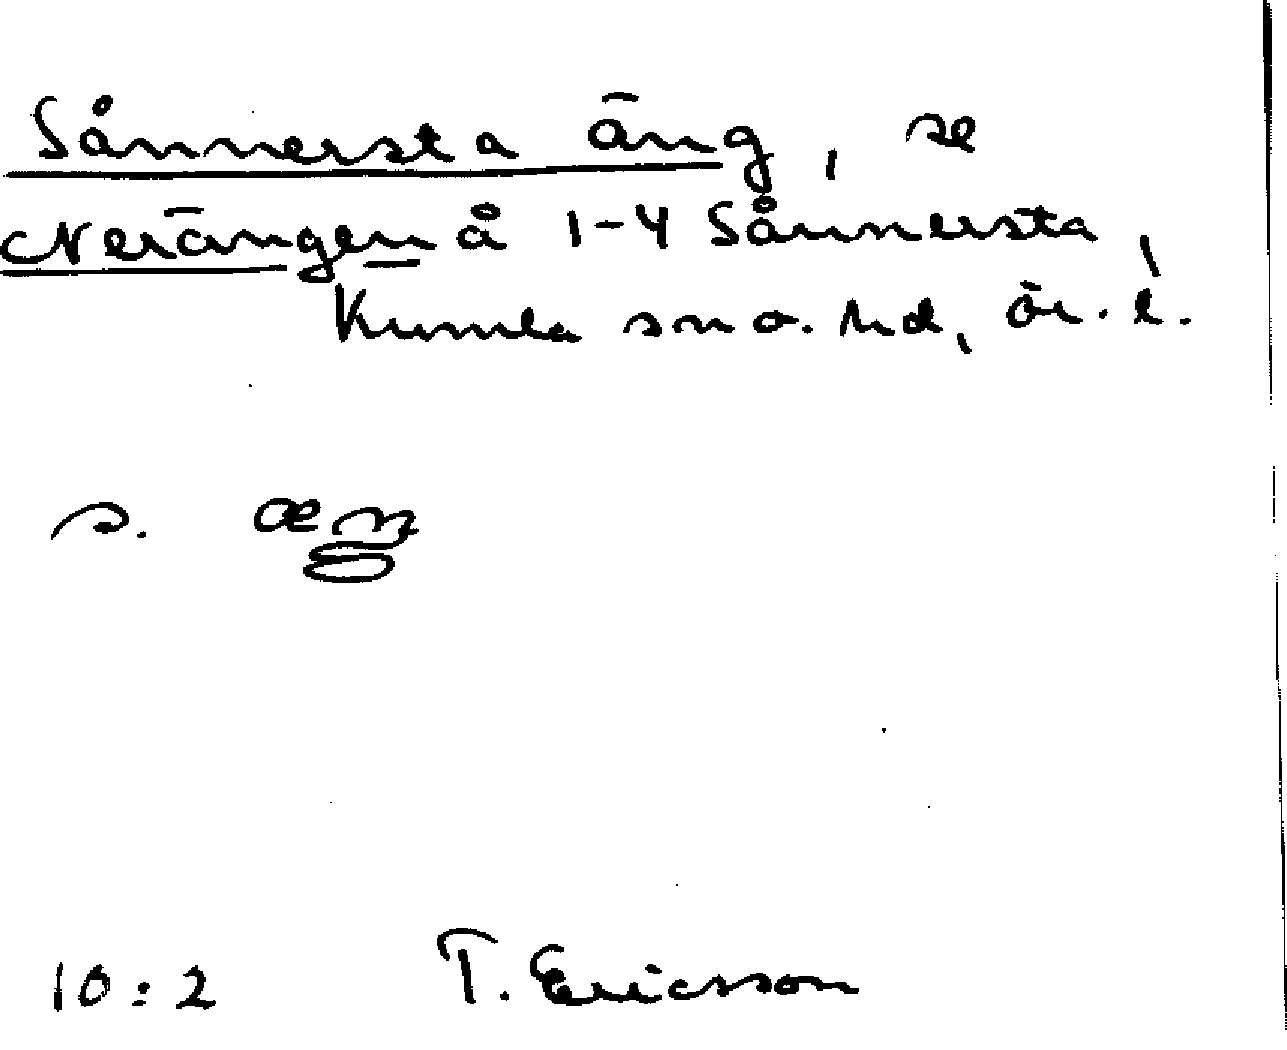 Sånnersta äng, se
Nerängen å 1-4 Sånnersta,
Kumla sn o. hd, ör. l.
s. æŋ
10:2 T. Ericsson